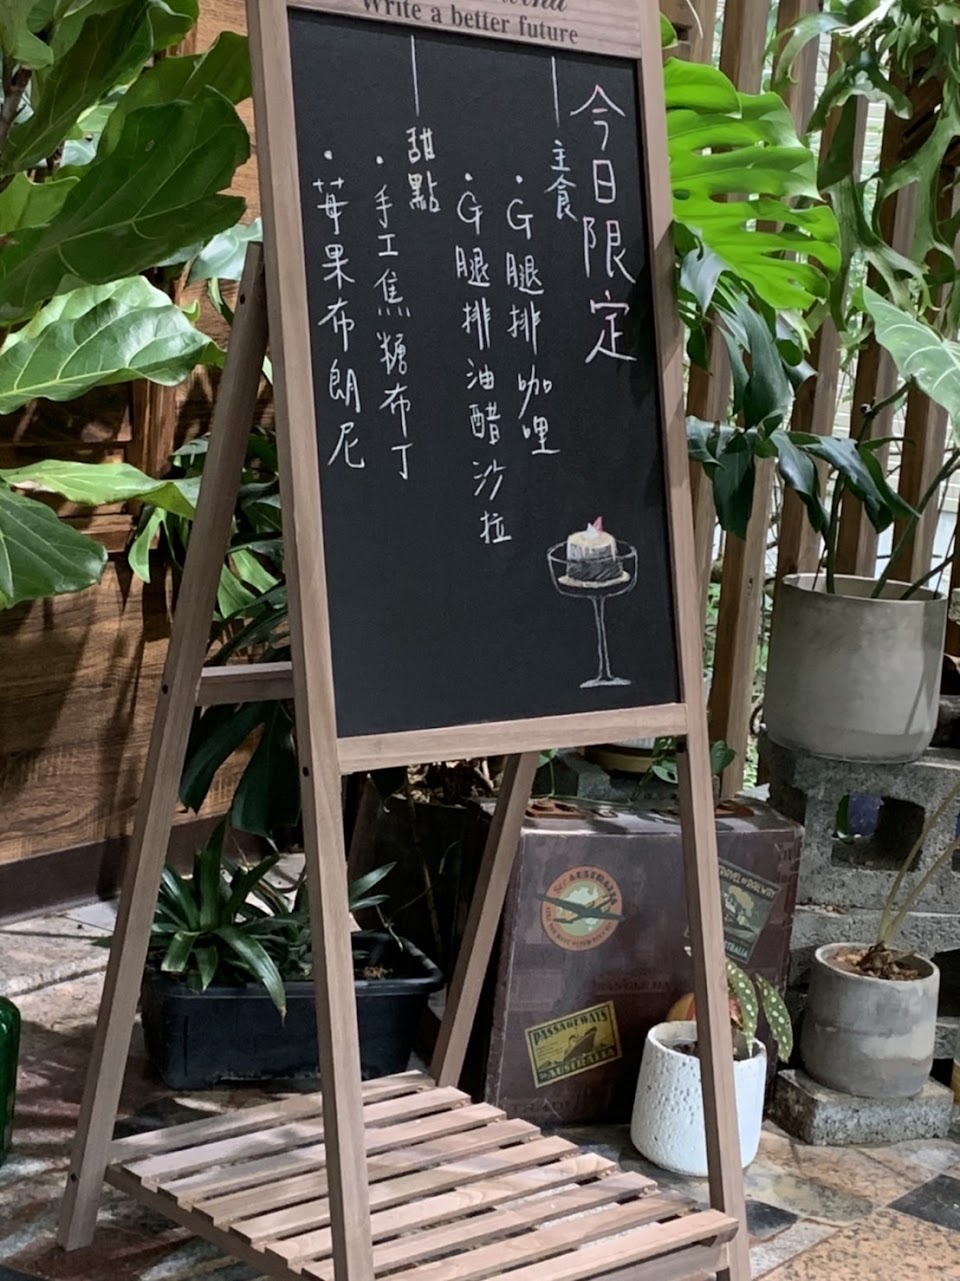 Write a better future
今日限定
主食
·G腿排咖哩
·G腿排油醋沙拉
甜點
·手工焦糖布丁
·莓果布朗尼
AUSTRALIA
AUSTRALIA
PASSAGEWAYS
to AUSTRALIA